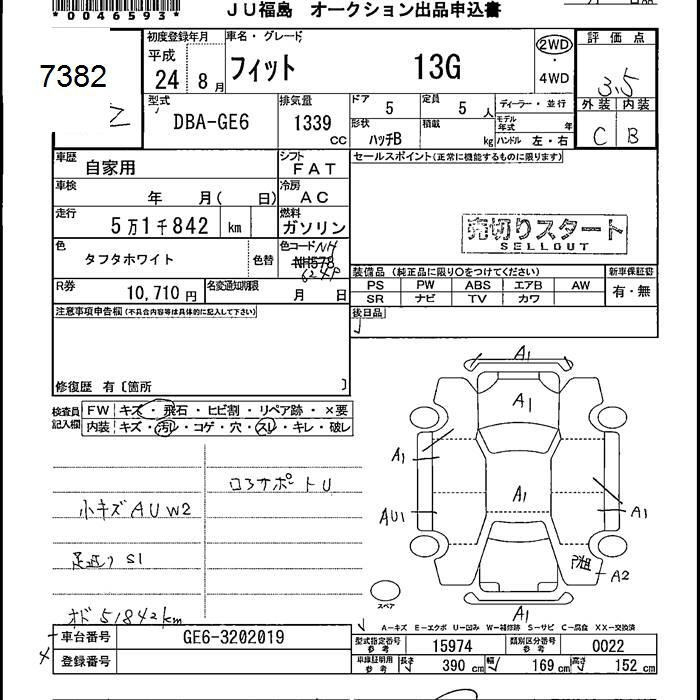 *0046593*
JU福島 オークション出品申込書
7382
初度登録年月
平成
24 8月
車名・グレード
フィット 13G
2WD
・
4WD
評価点
3.5
外装 内装
C B
型式
DBA-GE6
排気量
1339
CC
ドア
5
定員
5人
ディーラー・並行
形状
ハッチB
積載
kg
モデル年式 年
ハンドル 左・右
車歴
自家用
シフト
FAT
セールスポイント(正常に機能するものに限ります)
車検
年 月( 日)
冷房
AC
走行
5万1千842 km
燃料
ガソリン
売切りスタート
SELLOUT
色
タフタホワイト
色替
色コード NH
NH578
624P
装備品 (純正品に限り○をつけてください)
新車保証書
PS PW ABS エアB AW
有・無
SR ナビ TV カワ
R券
10,710円
名変通知期限
月 日
後日品
注意事項申告欄(不具合内容等は具体的に記入して下さい)
修復歴 有〔箇所 〕
検査員
記入欄
FW キズ・飛石・ヒビ割・リペア跡・×要
内装 キズ・汚レ・コゲ・穴・スレ・キレ・破レ
コアサポートU
小キズAUW2
足廻りS1
オド51842km
A1
A1
A1
A1
A1
AU1
A1
A2
A1
スペア
A-キズ E-エクボ U-凹み W-補修跡 S-サビ C-腐食 XX-交換済
車台番号 GE6-3202019
登録番号
型式指定番号
参考
15974
類別区分番号
参考
0022
車庫証明用
参考
長さ 390 cm 幅 169 cm 高さ 152 cm